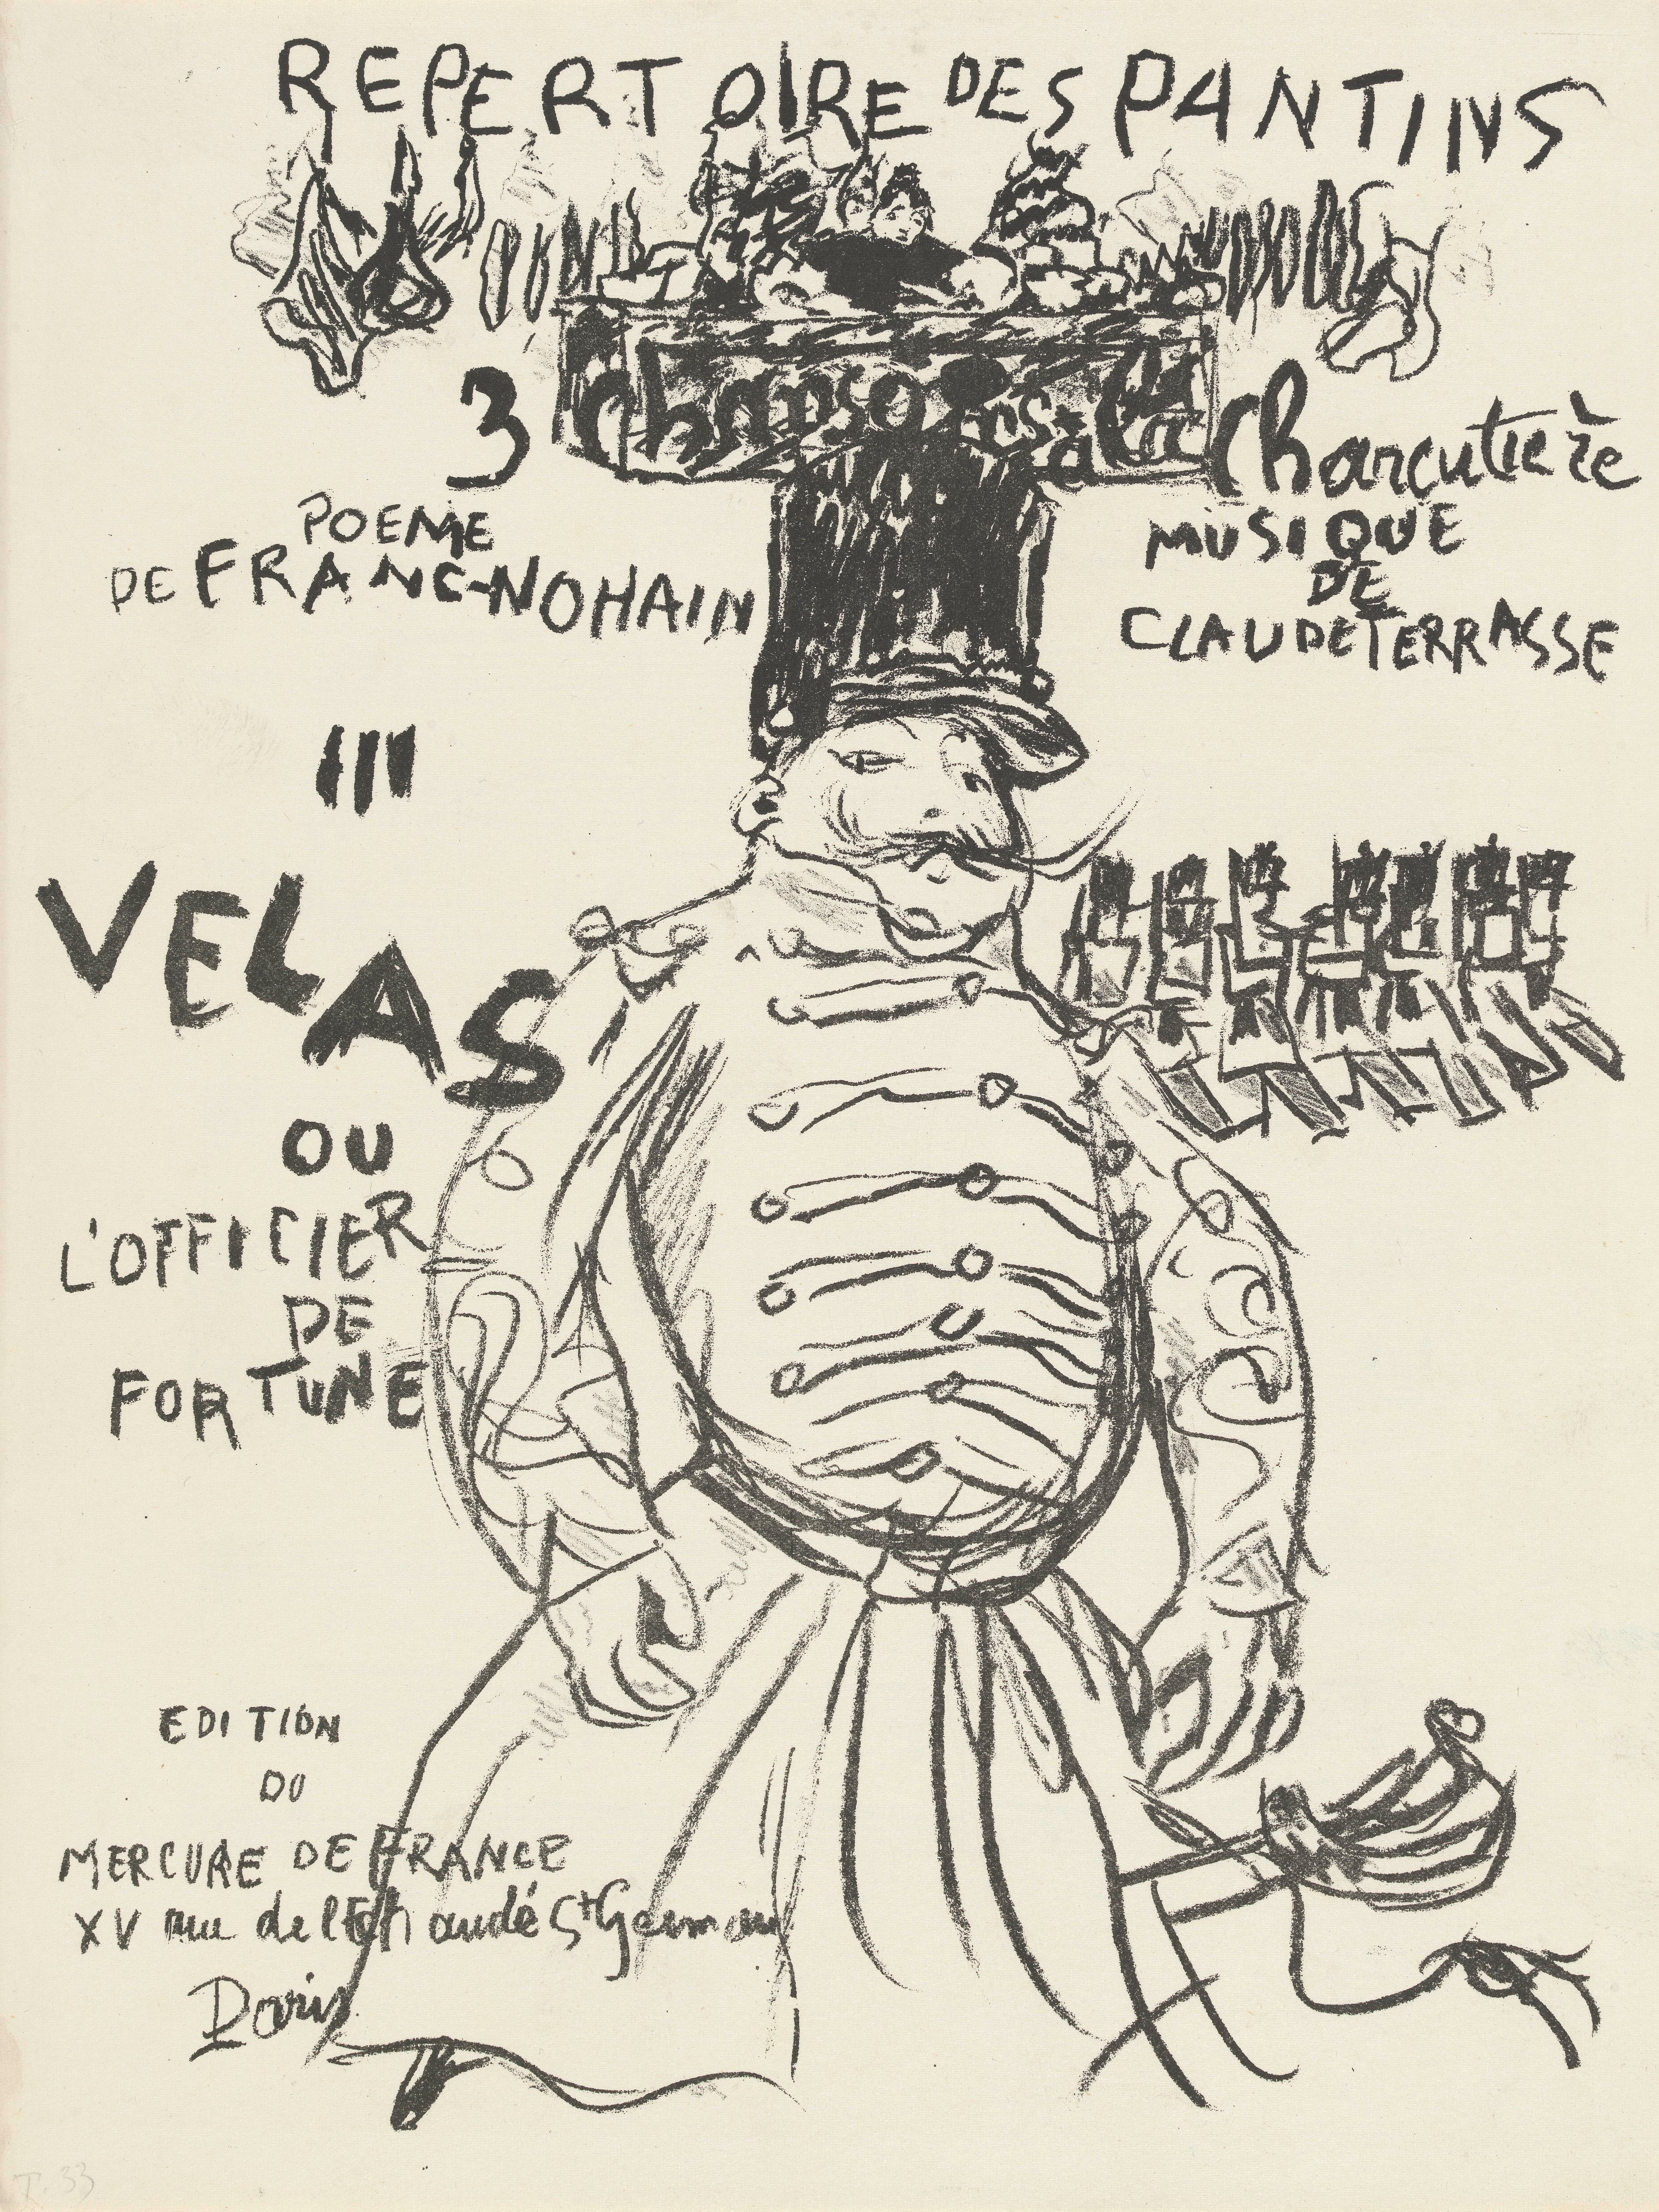 REPERTOIRE DES PANTINS
3 chansons à la Charcutière
POEME
DE FRANC-NOHAIN
MUSIQUE
DE
CLAUDE TERRASSE
III
VELAS
OU
L'OFFICIER
DE
FORTUNE
EDITION
DU
MERCURE DE FRANCE
XV rue de l'Echaudé St Germain
Paris
T. 33